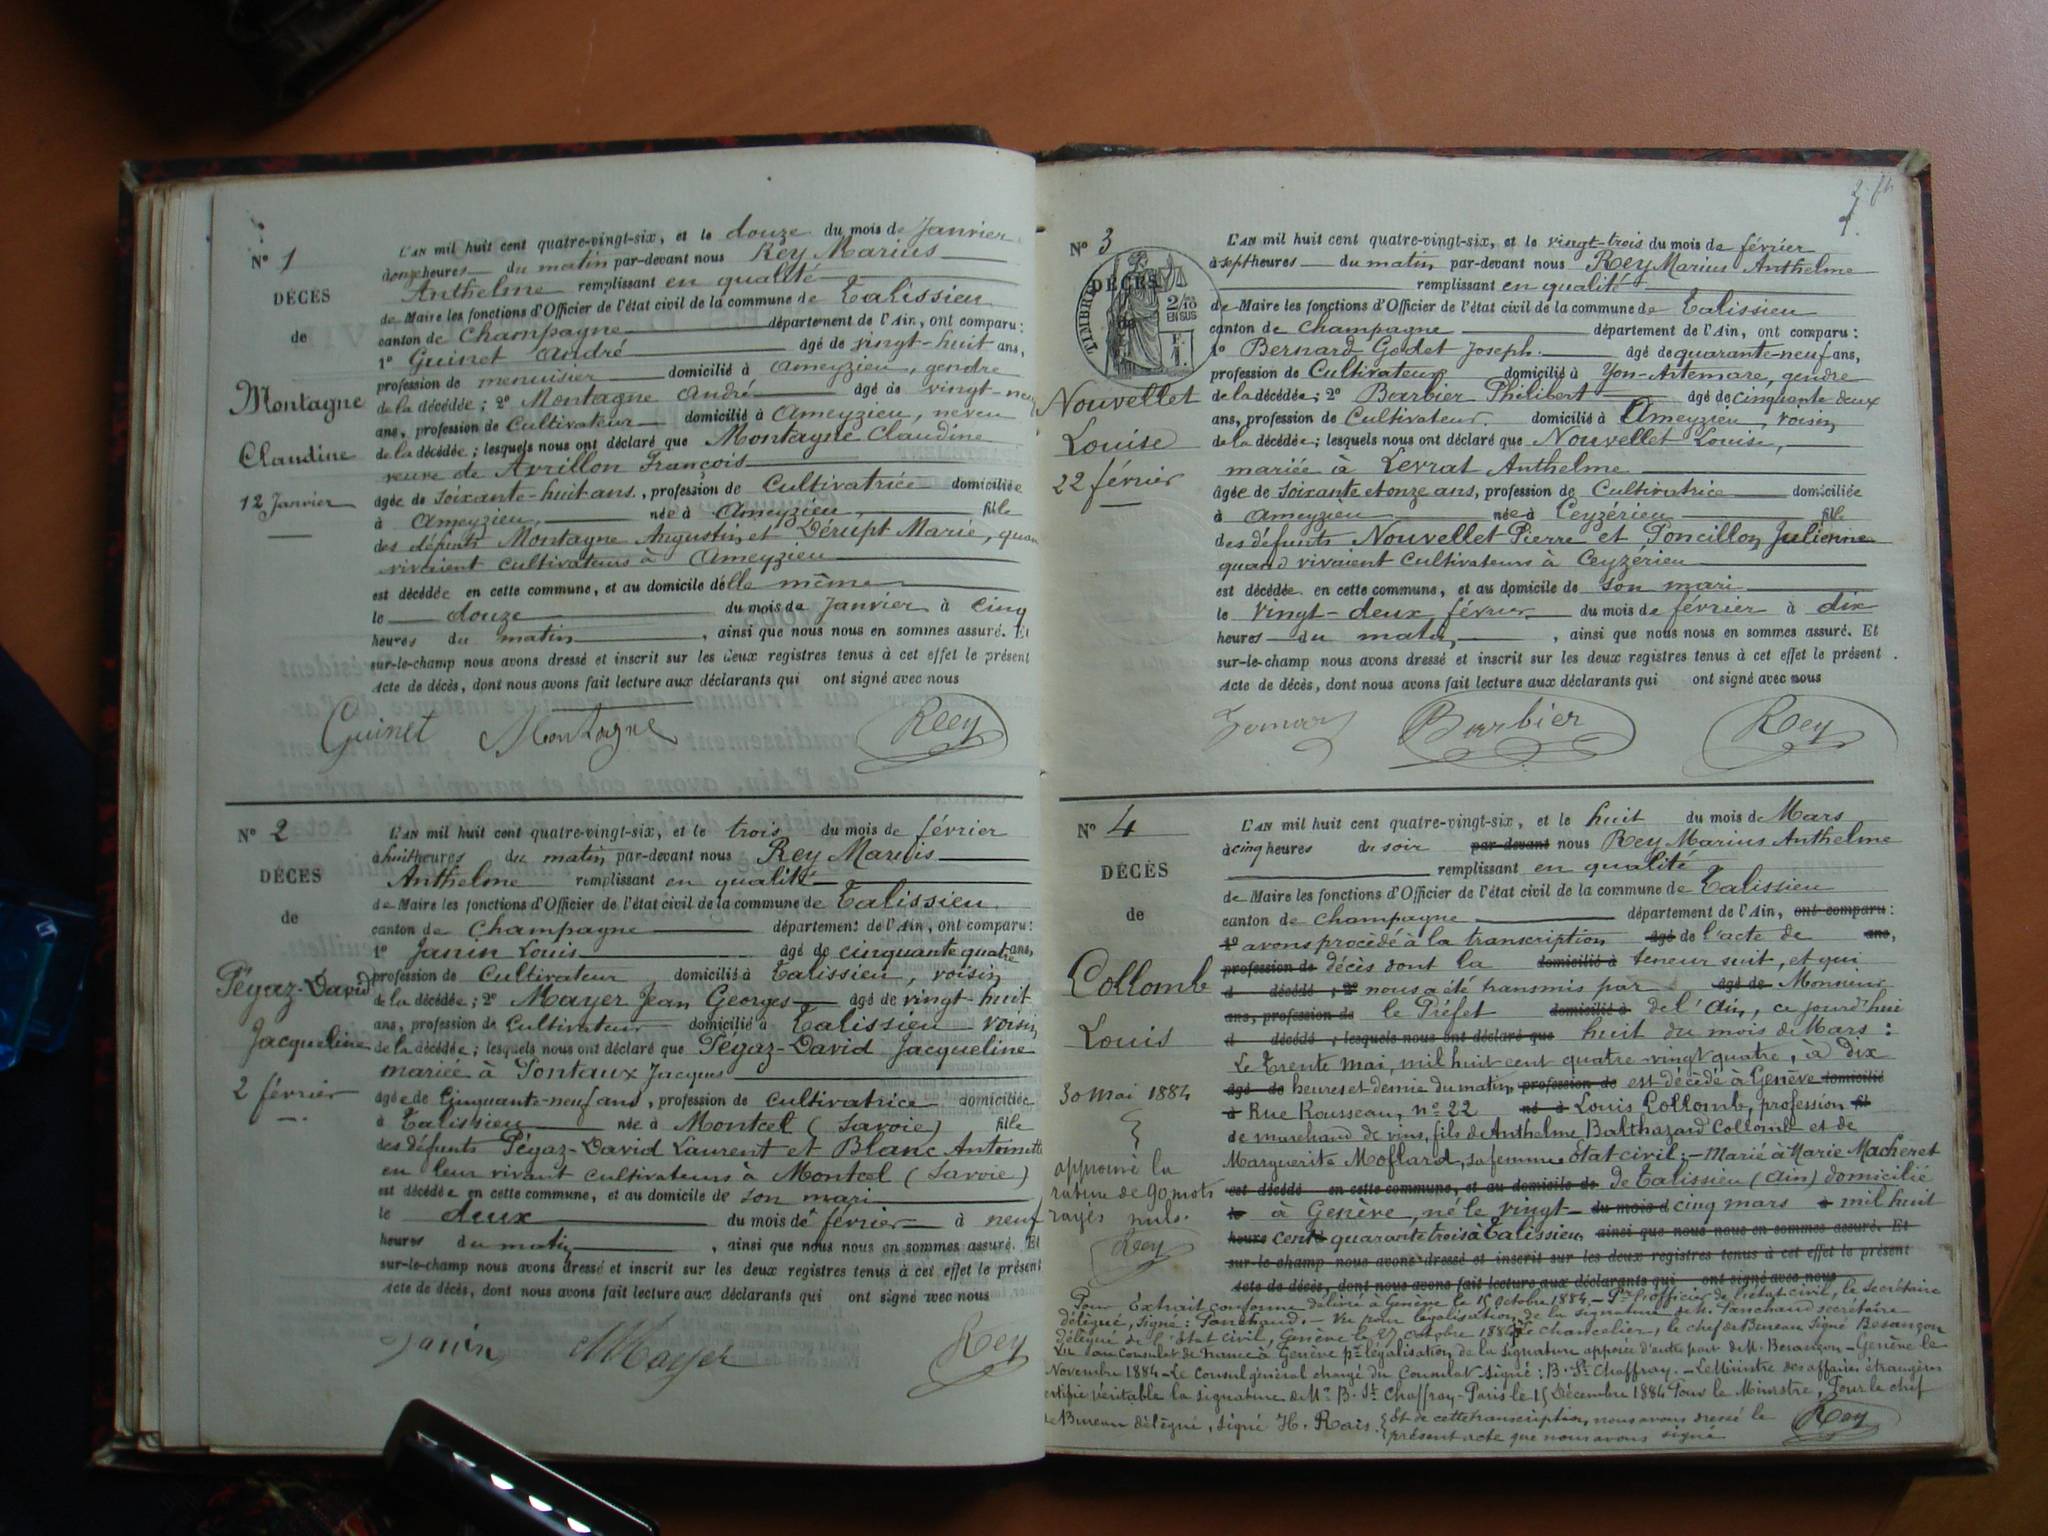 Nº 1
DÉCÈS
de
Montagne
Claudine
12 Janvier
L'AN mil huit cent quatre-vingt-six, et le douze du mois de Janvier
à onze heures du matin par-devant nous Rey Marius
Anthelme remplissant en qualité
de Maire les fonctions d'Officier de l'état civil de la commune de Talissieu
canton de Champagne département de l'Ain, ont comparu :
1º Guinet André âgé de vingt-huit ans,
profession de menuisier domicilié à Ameyzieu, gendre
de la décédée ; 2º Montagne André âgé de vingt-neuf
ans, profession de Cultivateur domicilié à Ameyzieu, neveu
de la décédée ; lesquels nous ont déclaré que Montagne Claudine
veuve de Avrillon François
âgée de soixante-huit ans, profession de Cultivatrice domiciliée
à Ameyzieu, née à Ameyzieu, fille
des défunts Montagne Augustin et Dérupt Marie, quan
vivaient cultivateurs à Ameyzieu
est décédée en cette commune, et au domicile d'elle même
le douze du mois de Janvier à cinq
heures du matin, ainsi que nous nous en sommes assuré. Et
sur-le-champ nous avons dressé et inscrit sur les deux registres tenus à cet effet le présent
Acte de décès, dont nous avons fait lecture aux déclarants qui ont signé avec nous
Guinet Montagne Rey
Nº 2
DÉCÈS
de
Pégaz-David
Jacqueline
2 février
L'AN mil huit cent quatre-vingt-six, et le trois du mois de février
à huit heures du matin par-devant nous Rey Marius
Anthelme remplissant en qualité
de Maire les fonctions d'Officier de l'état civil de la commune de Talissieu
canton de Champagne département de l'Ain, ont comparu :
1º Janin Louis âgé de cinquante quatre ans,
profession de Cultivateur domicilié à Talissieu, voisin
de la décédée ; 2º Mayer Jean Georges âgé de vingt-huit
ans, profession de Cultivateur domicilié à Talissieu voisin
de la décédée ; lesquels nous ont déclaré que Pégaz-David Jacqueline
mariée à Pontaux Jacques
âgée de Cinquante-neuf ans, profession de cultivatrice domiciliée
à Talissieu née à Montcel (Savoie) fille
des défunts Pégaz-David Laurent et Blanc Antoinette
en leur vivant cultivateurs à Montcel (Savoie)
est décédée en cette commune, et au domicile de son mari
le deux du mois de février à neuf
heures du matin, ainsi que nous nous en sommes assuré. Et
sur-le-champ nous avons dressé et inscrit sur les deux registres tenus à cet effet le présent
Acte de décès, dont nous avons fait lecture aux déclarants qui ont signé avec nous
Janin Mayer Rey
Nº 3
DÉCÈS
de
TIMBRE
2/10
EN SUS
Nouvellet
Louise
22 février
L'AN mil huit cent quatre-vingt-six, et le vingt-trois du mois de février
à sept heures du matin par-devant nous Rey Marius Anthelme
remplissant en qualité
de Maire les fonctions d'Officier de l'état civil de la commune de Talissieu
canton de Champagne département de l'Ain, ont comparu :
1º Bernard Godet Joseph âgé de quarante-neuf ans,
profession de Cultivateur domicilié à Yon-Artemare, gendre
de la décédée ; 2º Barbier Philibert âgé de cinquante deux
ans, profession de Cultivateur domicilié à Ameyzieu, voisin
de la décédée ; lesquels nous ont déclaré que Nouvellet Louise,
mariée à Levrat Anthelme
âgée de soixante et onze ans, profession de Cultivatrice domiciliée
à Ameyzieu née à Ceyzérieu fille
des défunts Nouvellet Pierre et Poncillon Julienne
quand vivaient cultivateurs à Ceyzérieu
est décédée en cette commune, et au domicile de son mari
le vingt-deux février du mois de février à dix
heures du matin, ainsi que nous nous en sommes assuré. Et
sur-le-champ nous avons dressé et inscrit sur les deux registres tenus à cet effet le présent
Acte de décès, dont nous avons fait lecture aux déclarants qui ont signé avec nous
Barbier Rey
Nº 4
DÉCÈS
de
Collomb
Louis
30 Mai 1884
approuvé la
rature de 90 mots
rayés nuls.
Rey
L'AN mil huit cent quatre-vingt-six, et le huit du mois de Mars
à cinq heures du soir par-devant nous Rey Marius Anthelme
remplissant en qualité
de Maire les fonctions d'Officier de l'état civil de la commune de Talissieu
canton de Champagne département de l'Ain, ont comparu :
1º avons procédé à la transcription âgé de l'acte de ans,
profession de décès dont la domicilié à teneur suit, et qui
d décédé ; 2º nous a été transmis par âgé de Monsieur
ans, profession de le Préfet domicilié à de l'Ain, ce jourd'hui
d décédé ; lesquels nous ont déclaré que huit du mois de Mars :
Le Trente mai, mil huit cent quatre-vingt quatre, à dix
âgé de heures et demie du matin, profession de est décédé à Genève domicilié
à Rue Rousseau, nº 22 né à Louis Collomb, profession fil
de marchand de vins, fils de Anthelme Balthazard Collomb et de
Marguerite Moflard, sa femme état civil :- Marié à Marie Macheret
est décédé en cette commune, et au domicile de de Talissieu (Ain) domicilié
le à Genève, né le vingt- du mois d cinq mars à mil huit
heure cent quarante trois à Talissieu ainsi que nous nous en sommes assuré. Et
sur-le-champ nous avons dressé et inscrit sur les deux registres tenus à cet effet le présent
Acte de décès, dont nous avons fait lecture aux déclarants qui ont signé avec nous
Pour Extrait conforme délivré à Genève le 15 Octobre 1884.- Pr l'officier de l'état civil, le secrétaire
délégué, Signé : Panchaud.- Vu pour légalisation de la signature de M. Panchaud secrétaire
délégué de l'état civil, Genève le 27 octobre 1884 Le chancelier, le chef de Bureau Signé Besançon
Vu au Consulat de France à Genève pr légalisation de la signature apposée d'autre part de M. Besançon - Genève le
Novembre 1884 - Le Consul général chargé du Consulat Signé : B. St Chaffray. - Le Ministre des affaires étrangères
certifie véritable la signature de Mr B. St Chaffray - Paris le 15 Décembre 1884 Pour le Ministre, Pour le chef
de Bureau délégué, signé H. Rais. Et de cette transcription, nous avons dressé le
présent acte que nous avons signé
Rey